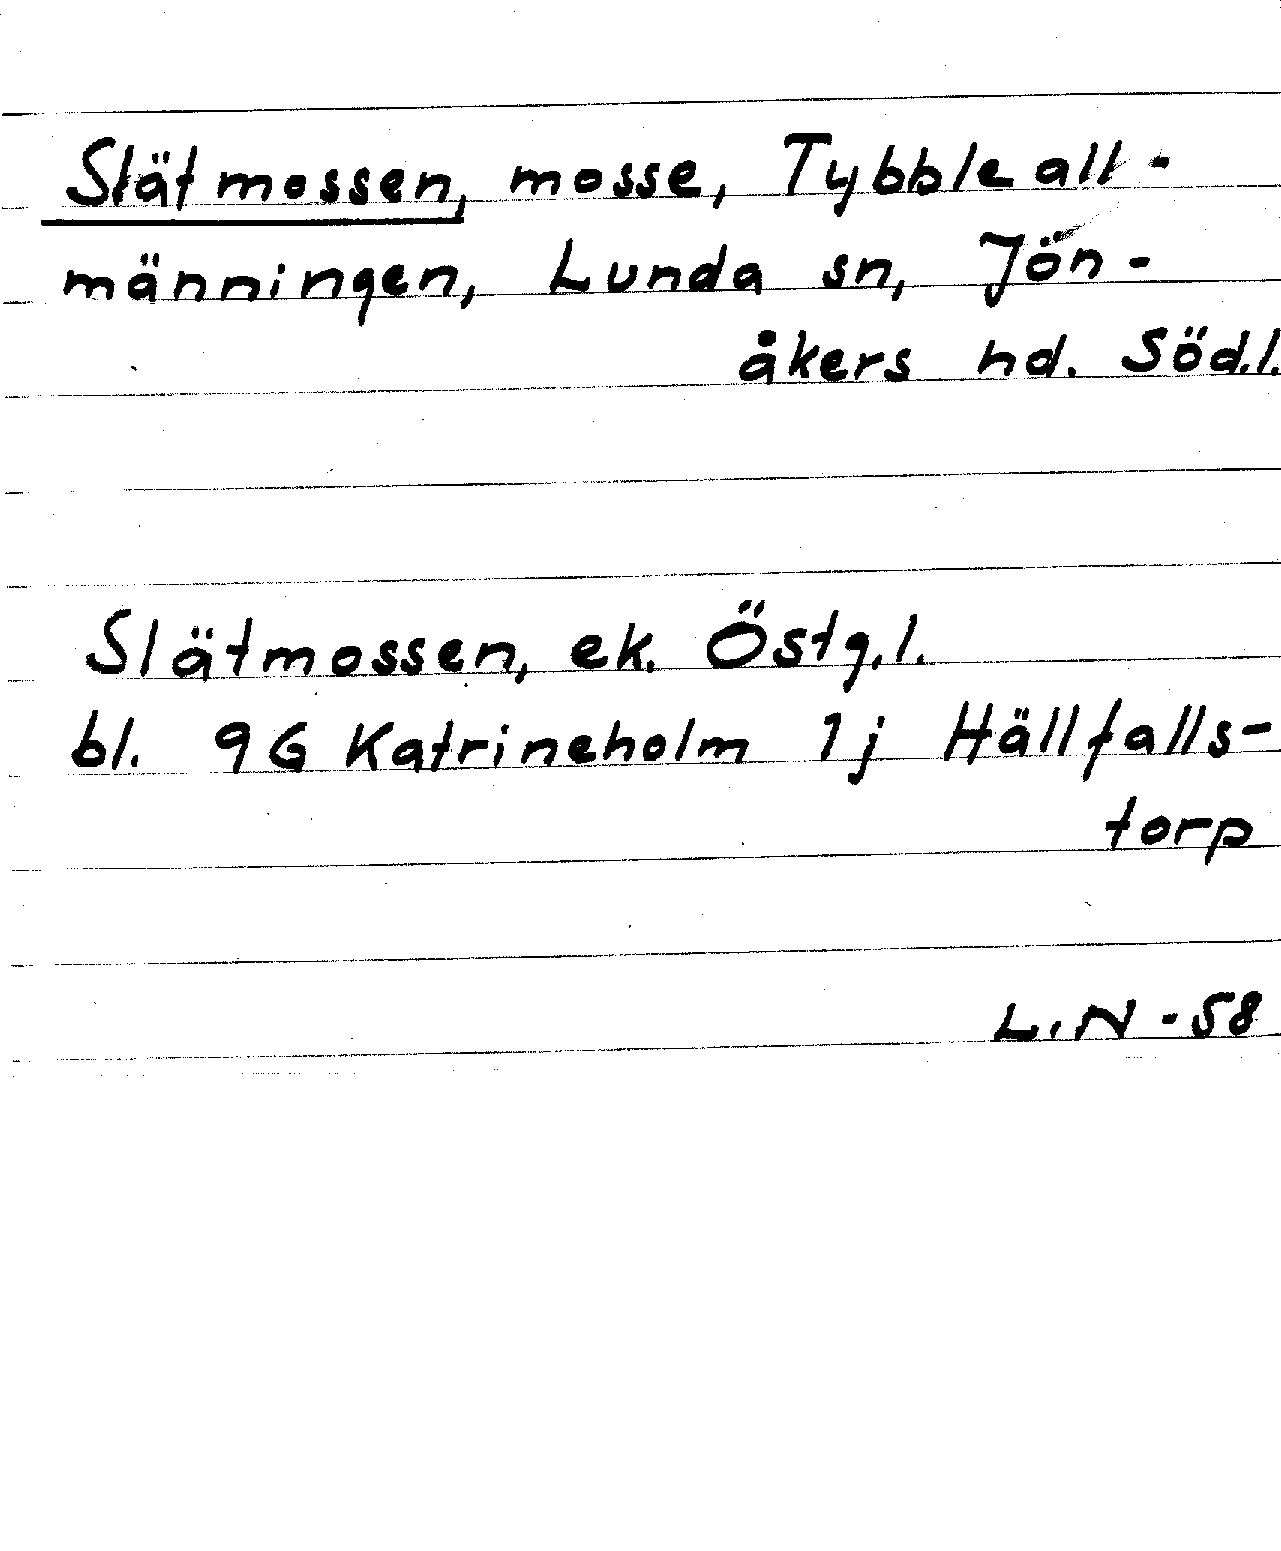 Slätmossen, mosse, Tybble all-
männingen, Lunda sn, Jön-
åkers hd. Söd.l.
Slätmossen, ek. Östg.l.
bl. 9G Katrineholm 1j Hällfalls-
torp
L.N -58